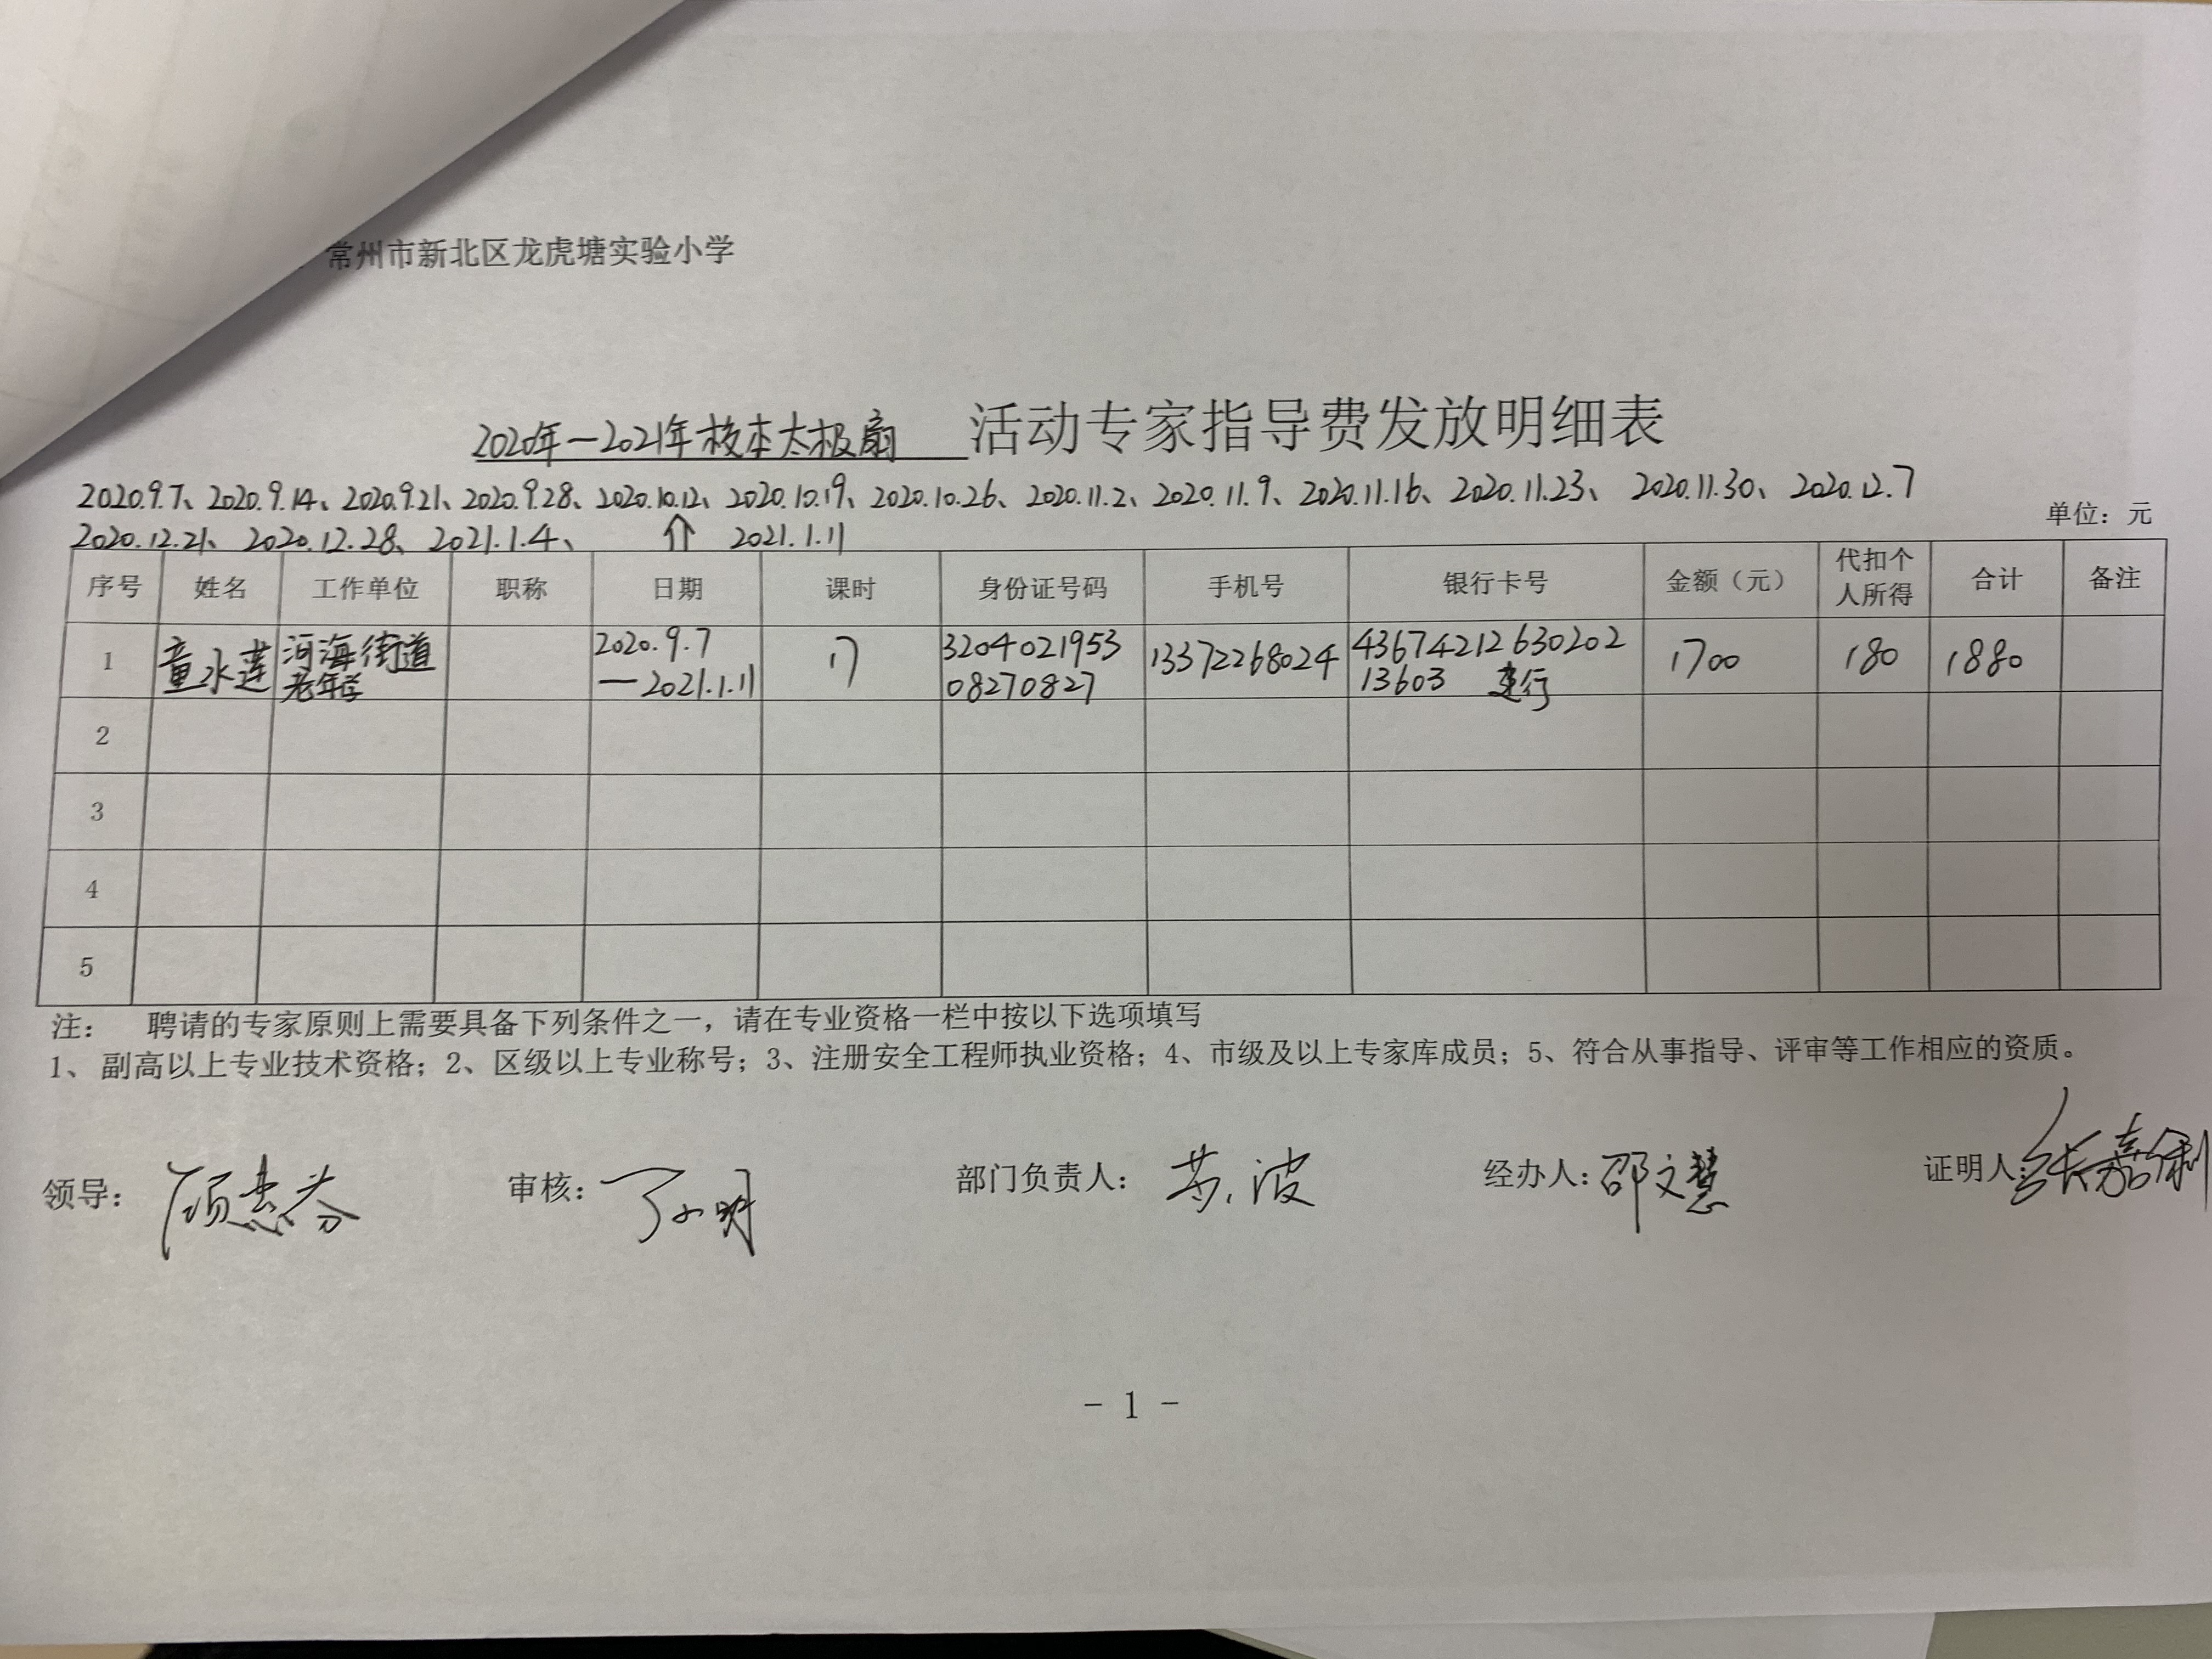 常州市新北区龙虎塘实验小学
2020年—2021年校本太极扇 活动专家指导费发放明细表
2020.9.7、2020.9.14、2020.9.21、2020.9.28、2020.10.12、2020.10.19、2020.10.26、2020.11.2、2020.11.9、2020.11.16、2020.11.23、2020.11.30、2020.12.7
单位：元
2020.12.21、2020.12.28、2021.1.4、 ⇑ 2021.1.11
序号 姓名 工作单位 职称 日期 课时 身份证号码 手机号 银行卡号 金额（元） 代扣个人所得 合计 备注
1 童水莲 河海街道老年学 2020.9.7—2021.1.11 17 320402195308270827 13372268024 4367421263020213603 建行 1700 180 1880
2
3
4
5
注： 聘请的专家原则上需要具备下列条件之一，请在专业资格一栏中按以下选项填写
1、副高以上专业技术资格；2、区级以上专业称号；3、注册安全工程师执业资格；4、市级及以上专家库成员；5、符合从事指导、评审等工作相应的资质。
领导：顾惠芬 审核：丁小明 部门负责人： 经办人：邵文慧 证明人：
- 1 -